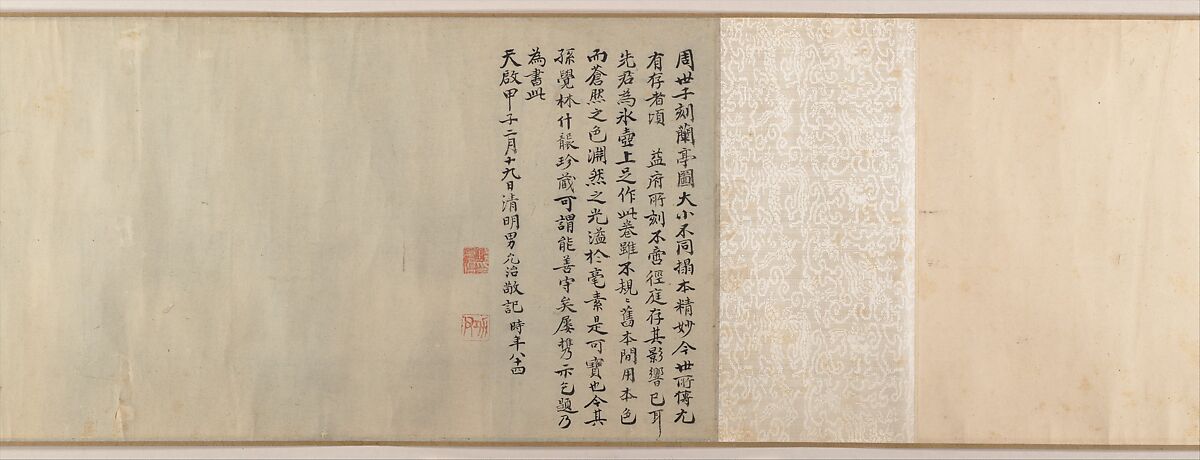 周世子刻蘭亭圖大小不同搨本精妙今世所傳尤
有存者頃　益府所刻不啻徑庭存其影響已耳
先君為氷壺上足作此卷雖不規〻舊本間用本色
而蒼然之色淵然之光溢於毫素是可寶也今其
孫覺林什襲珍藏可謂能善守矣屢携示乞題乃
為書此
天啟甲子二月十九日清明男允治敬記時年八十四